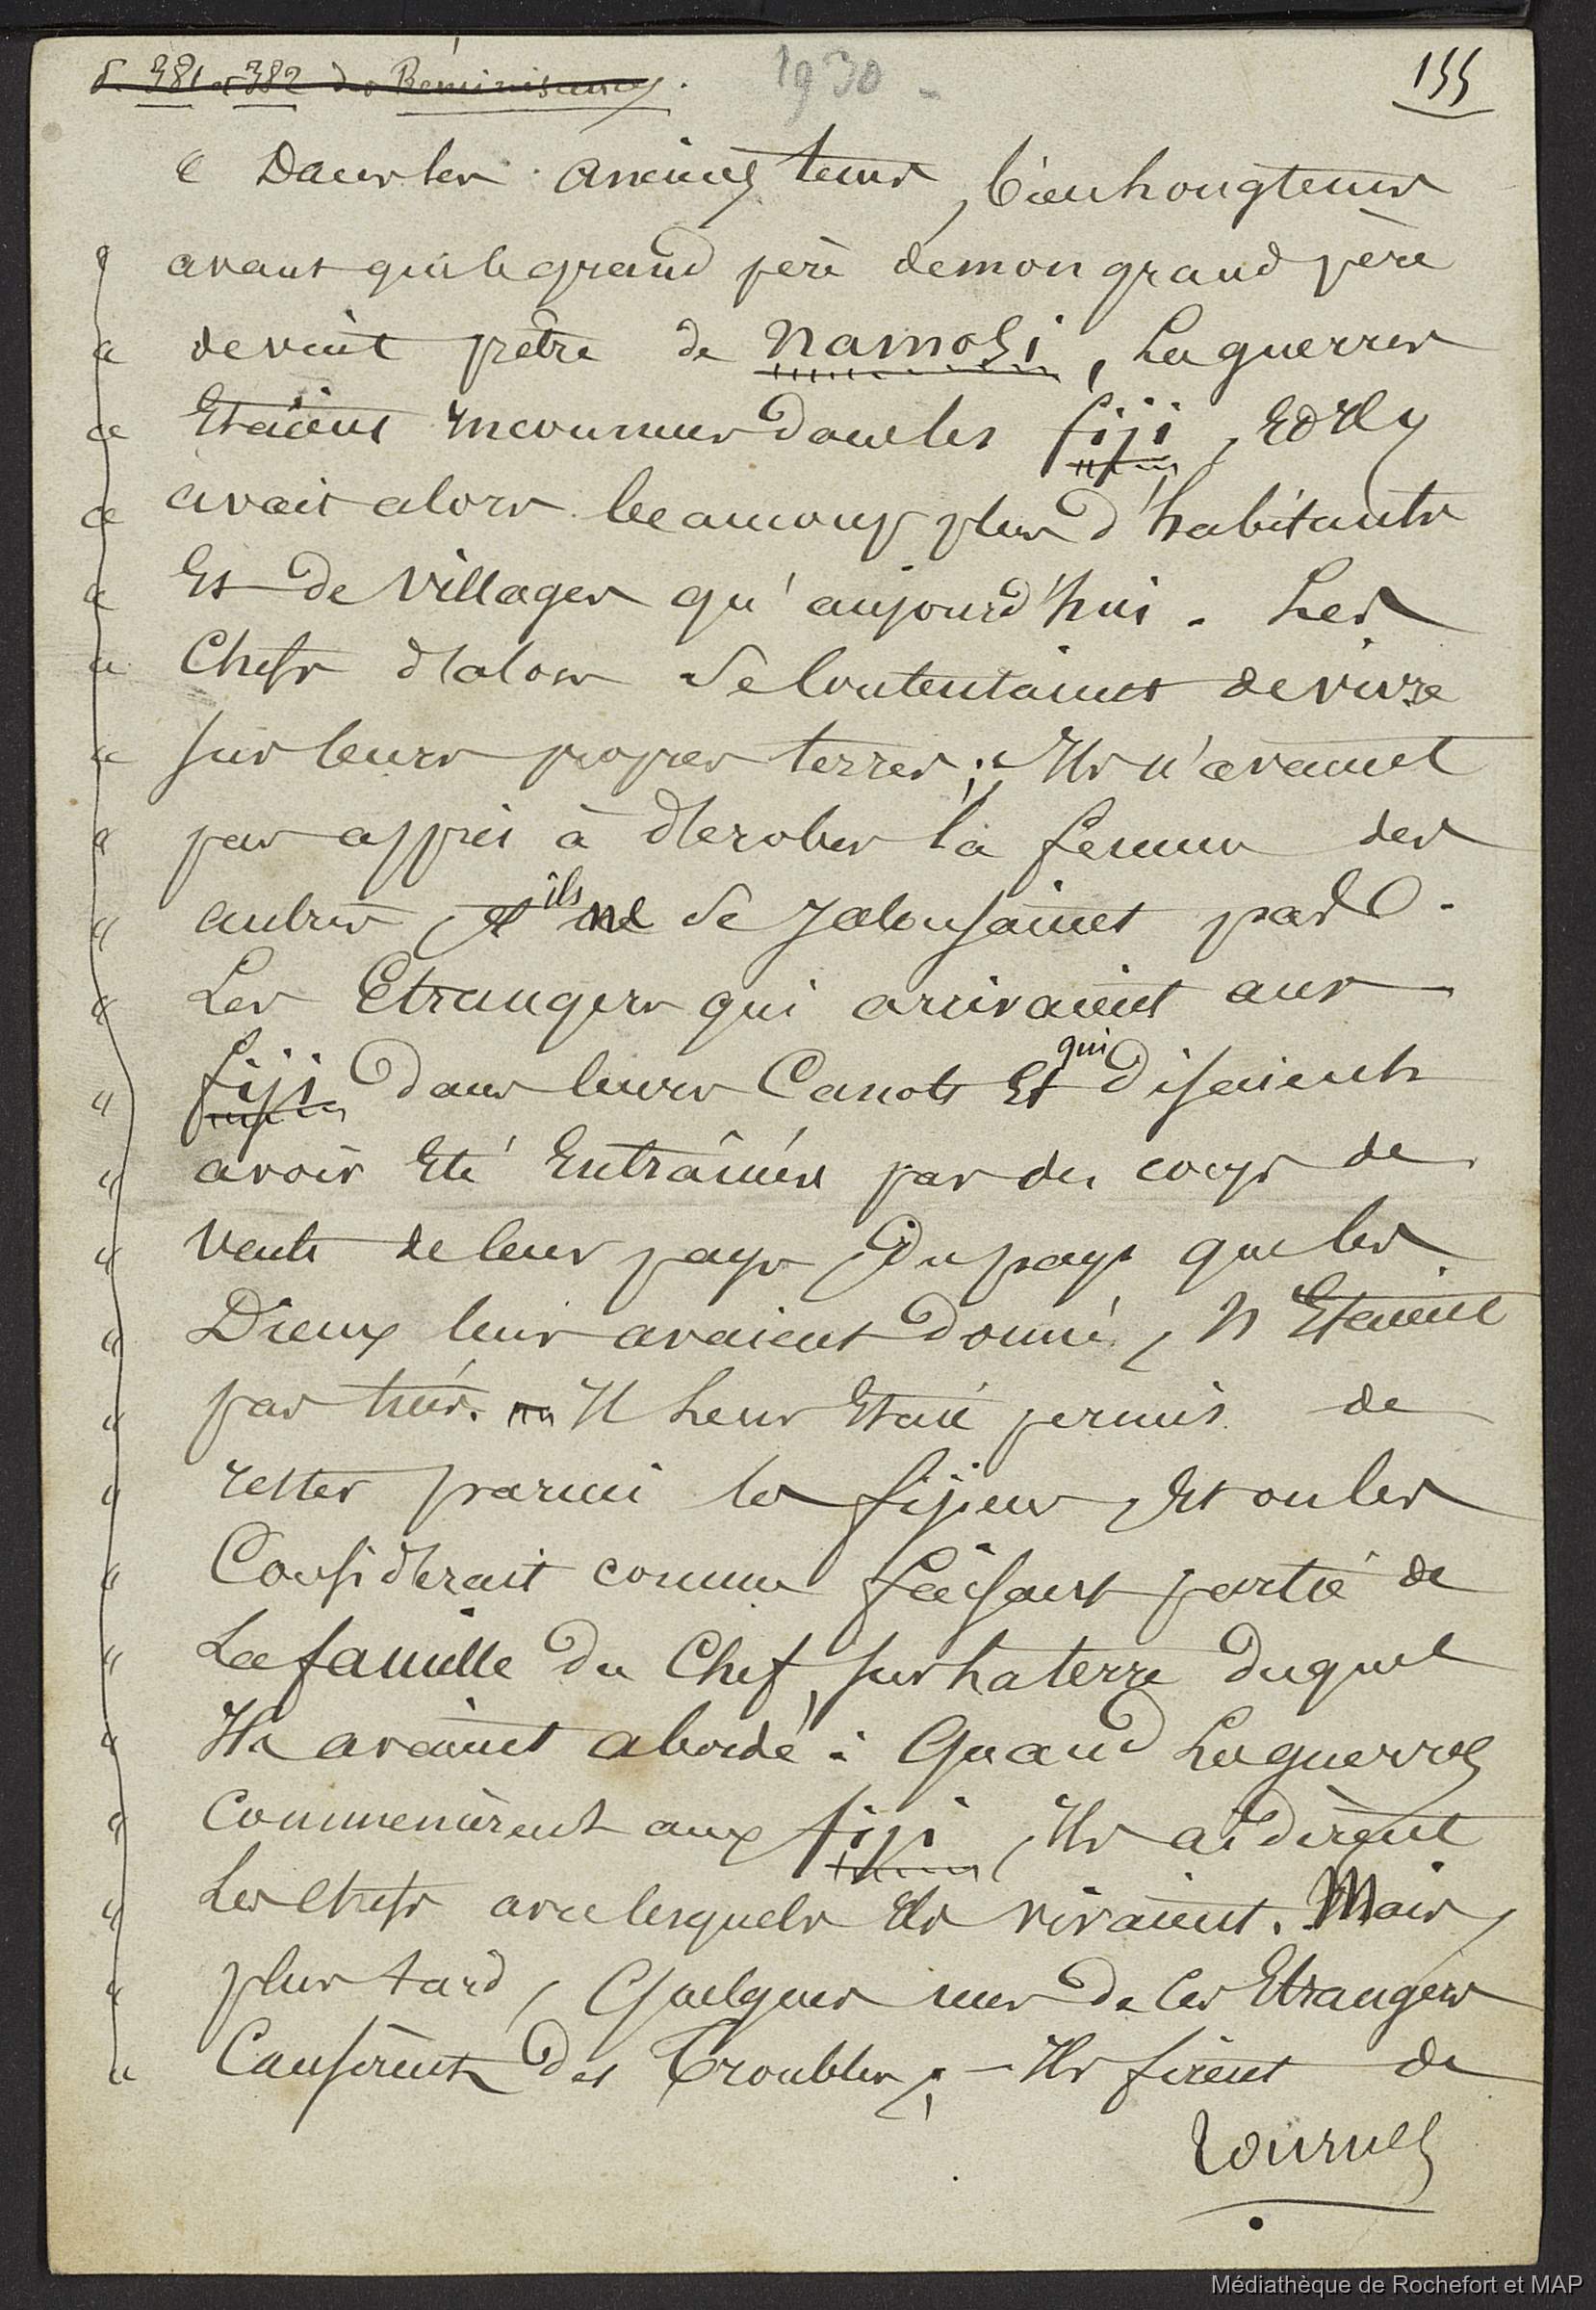 381 et 382 des Réminiscences. 1930 - 155
« Dans les anciens tems, bien hongtems
avant que le grand père de mon grand père
devint prêtre de Namosi, Les guerres
Etaient Inconnues dans les fiji, Et Il y
avait alors beaucoup plus d'habitants
Et de villages qu'aujourd'hui. Les
Chefs d'alors se Contentaient de vivre
sur leurs propres terres; Ils n'avaient
pas appris à dérober la femme des
autres, Et ils ne se Jalousaient pas.
Les Etrangers qui arrivaient aux
fiji dans leurs Canots Et qui disaient
avoir Eté Entraînés par des coups de
vents de leur pays, du pays que les
Dieux leur avaient donné, N'Etaient
pas tués. Il Leur Etait permis de
rester parmi les fijiens, Et on les
Considérait comme faisant partie de
La famille du Chef, sur la terre duquel
Ils avaient abordé. Quand Les guerres
commencèrent aux fiji, Ils aidèrent
Les chefs avec lesquels Ils vivaient. Mais,
plus tard, Quelques uns de Ces Etrangers
Causèrent des Troubles; - Ils firent de
Tournez
Médiathèque de Rochefort et MAP